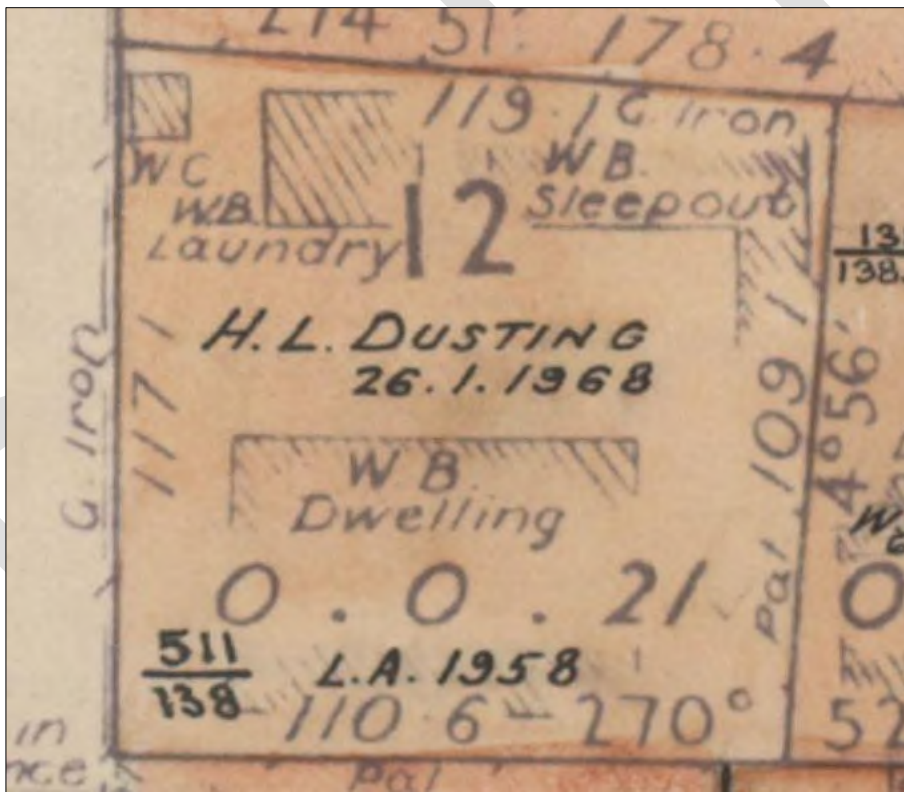 214 51' 178.4
119.1 G. Iron
WC
W.B. Laundry
12
W B. Sleepout
138
H. L. DUSTING
26.1.1968
G. Iron
117 1
109 1
4°56'
W B.
Dwelling
Pal
0 . 0 . 21
0
511
138
L.A. 1958
110 6 - 270°
52
Pal